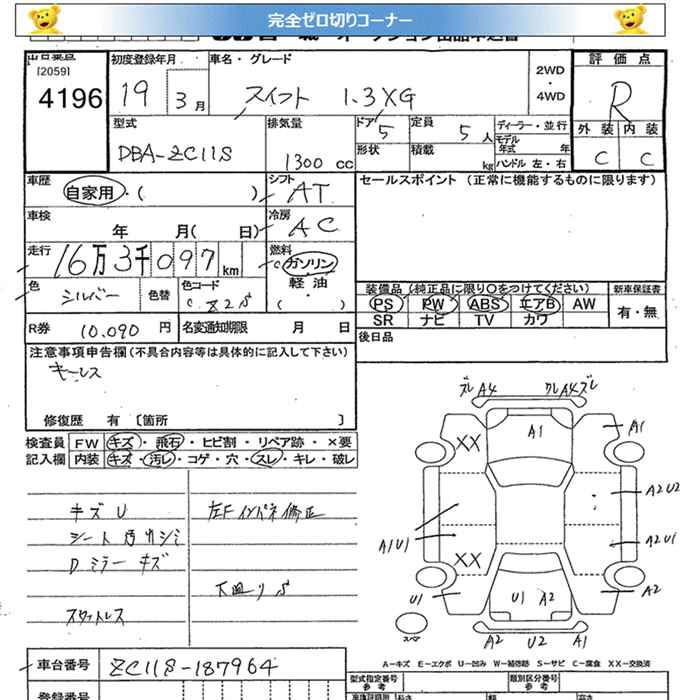 完全ゼロ切りコーナー
[2059]
4196
初度登録年月
19
3月
車名・グレード
スイフト 1.3XG
2WD
・
4WD
評価点
R
外装 内装
C C
型式
DBA-ZC11S
排気量
1300 cc
ドア
5
形状
定員
5人
積載
kg
ディーラー・並行
モデル年式 年
ハンドル 左・右
車歴
自家用・( )
シフト
AT
セールスポイント (正常に機能するものに限ります)
車検
年 月( 日)
冷房
AC
走行
16万3千097km
燃料
ガソリン
軽油
・
( )
色
シルバー
色替
色コード
Z2S
装備品 (純正品に限り○をつけてください)
PS PW ABS エアB AW
SR ナビ TV カワ
新車保証書
有・無
R券 10.090 円
名変通知期限 月 日
後日品
注意事項申告欄(不具合内容等は具体的に記入して下さい)
キーレス
修復歴 有 〔箇所 〕
検査員
記入欄
FW キズ・飛石・ヒビ割・リペア跡・×要
内装 キズ・汚レ・コゲ・穴・スレ・キレ・破レ
キズU
Dミラーキズ
左Fインパネ修正
ズレ A4
A4 ズレ
A1
A1
XX
A2 U2
A1U1
A2 U1
XX
U1
U1 A2
A2
スペア
A2 U2 A1
A−キズ E−エクボ U−凹み W−補修跡 S−サビ C−腐食 XX−交換済
車台番号 ZC11S-187964
登録番号
型式指定番号
参考
類別区分番号
参考
長さ
幅
高さ